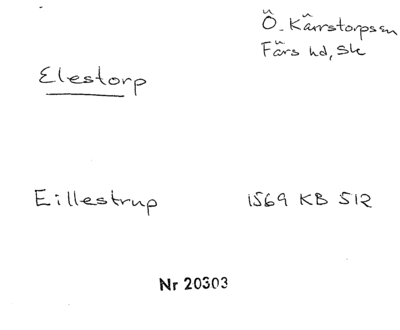 Ö. Kärrstorps sn
Färs hd, Sk
Elestorp
Eillestrup 1569 KB 512
Nr 20303